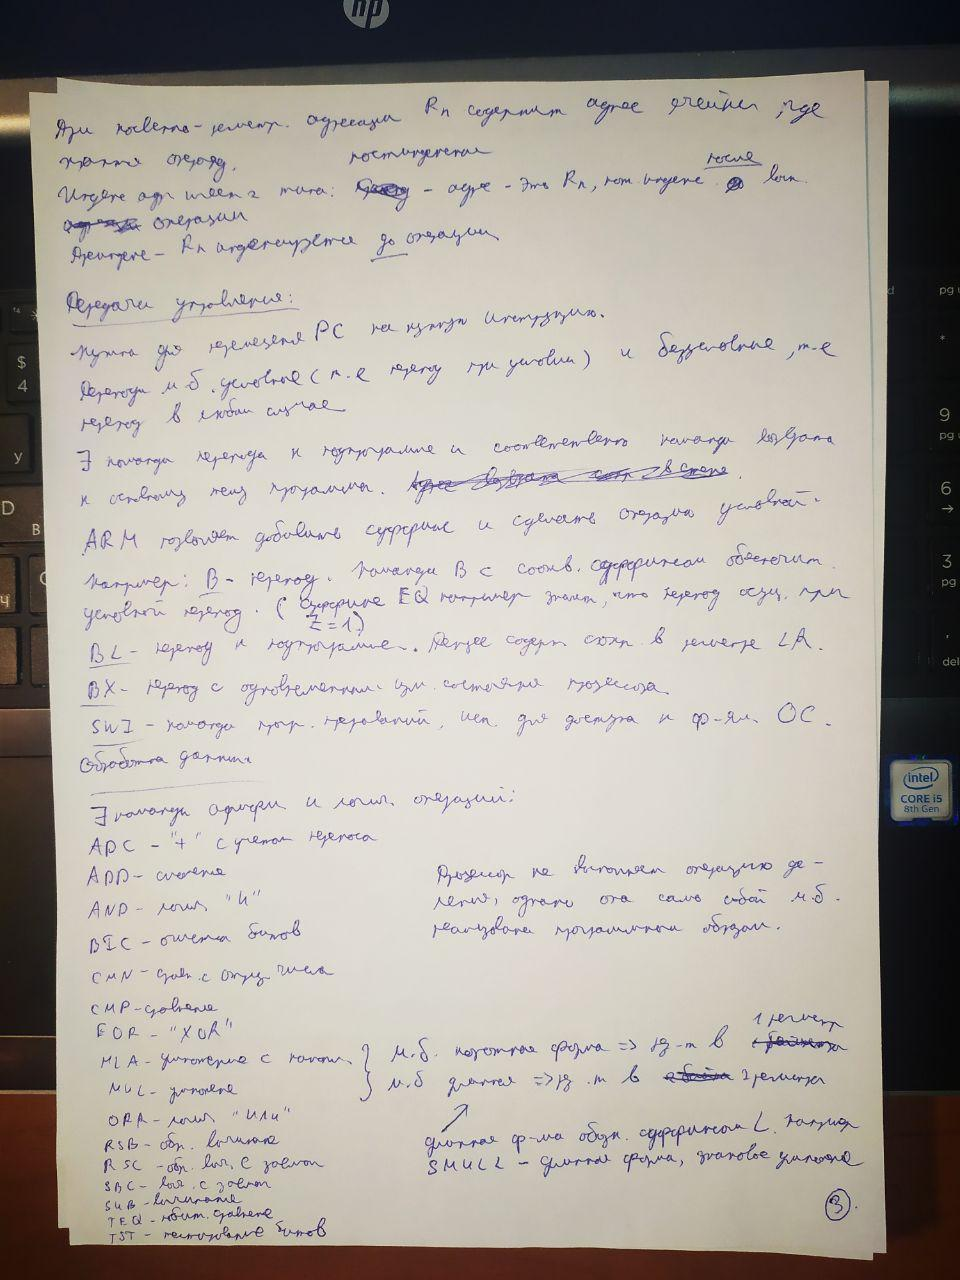 hp
При косвенно-регистр. адресации Rn содержит адрес ячейки, где
хранится операнд.
постиндексная
Индекс адр имеет 2 типа: - адрес - это Rn, кот. индекс. после вып.
операции
Прединдекс - Rn индексируется до операции
Передачи управления:
Нужна для перемещения PC на нужную инструкцию.
Переходы м.б. условные (т.е переход при условии) и безусловные, т-е
переход в любом случае
∃ команда перехода к подпрограмме и соответственно команда возврата
к основному телу программы.
ARM позволяет добавить суффикс и сделать операцию условной.
Например: B - переход. Команда B с соотв. суффиксом обеспечит
условный переход. (Суффикс EQ например значит, что переход осущ. при
Z=1)
BL - переход к подпрограмме. Адрес сохр. в регистре LR.
BX - переход с одновременным изм. состояния процессора.
SWI - команда прогр. прерываний, исп. для доступа к ф-ям ОС.
Обработка данных
∃ команды арифм и логич. операций:
ADC - "+" с учетом переноса
ADD - сложение
AND - логич. "И"
BIC - очистка битов
CMN - сравн. с отриц. числа
CMP - сравнение
EOR - "XOR"
MLA - умножение с накопл.
MUL - умножение
ORR - логич. "ИЛИ"
RSB - обр. вычитание
RSC - обр. выч. с заемом
SBC - выч. с заемом
SUB - вычитание
TEQ - побит. сравнение
TST - тестирование битов
Процессор не выполняет операцию де-
ления, однако она само собой м.б.
реализована программным образом.
м.б. короткая форма => рез-т в 1 регистр
м.б длинная => рез-т в 2 регистра
длинная ф-ма обозн. суффиксом L. Например
SMULL - длинная форма, знаковое умножение
3
$
4
У
D
В
Ч
pg
*
9
pg
6
→
3
pg
del
intel
CORE i5
8th Gen